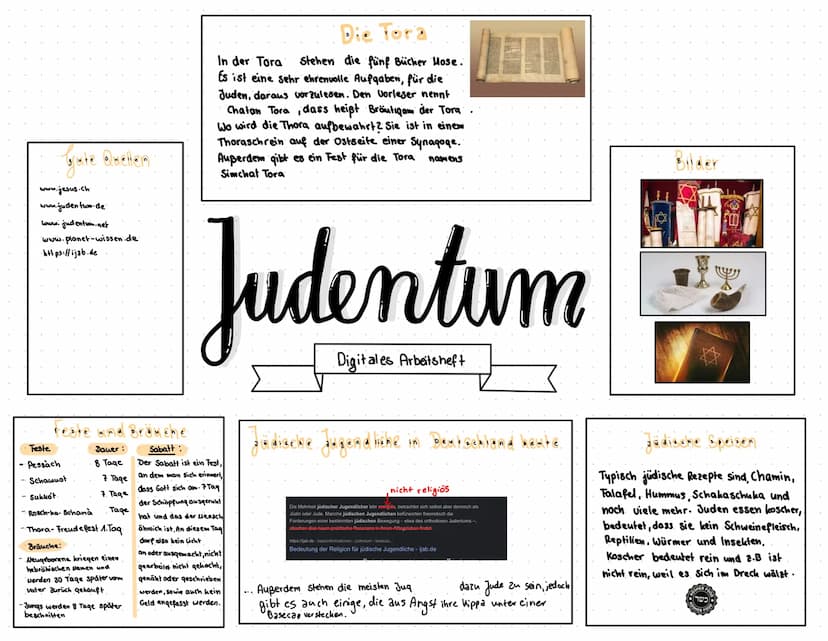 Die Tora
In der Tora stehen die fünf Bücher Mose.
Es ist eine sehr ehrenvolle Aufgaben, für die
Juden, daraus vorzulesen. Den Vorleser nennt
Chatan Tora, dass heißt Bräutigam der Tora.
Wo wird die Thora aufbewahrt? Sie ist in einem
Thoraschrein auf der Ostseite einer Synagoge.
Außerdem gibt es ein Fest für die Tora namens
Simchat Tora
Gute Quellen
www.jesus.ch
www.judentum.de
www.judentum.net
www.planet-wissen.de
https://ijab.de
Bilder
Judentum
Digitales Arbeitsheft
Feste und Bräuche
Feste: Dauer:
- Pessach 8 Tage
- Schawuot 7 Tage
- Sukkot 7 Tage
- Rosch-ha-Schana Tage
- Thora-Freudefest 1.Tag
Bräuche:
- Neugeborene kriegen einen
hebräischen Namen und
werden 30 Tage später vom
Vater zurück gekauft
- Jungs werden 8 Tage später
beschnitten
Sabatt:
Der Sabatt ist ein Fest,
an dem man sich erinnert,
dass Gott sich am 7 Tag
der Schöpfung ausgeruht
hat und das der Mensch
ähnlich ist. An diesem Tag
darf also kein Licht
an oder ausgemacht, nicht
gearbeitet, nicht gekocht,
genäht oder geschrieben
werden, sowie auch kein
Geld angefasst werden.
Jüdische Jugendliche in Deutschland heute
nicht religiös
Die Mehrheit jüdischer Jugendlicher betrachtet sich selbst aber dennoch als
Jüdin oder Jude. Manche jüdischen Jugendlichen befürworten theoretisch die
Forderungen einer bestimmten jüdischen Bewegung – etwa des orthodoxen Judentums –,
Bedeutung der Religion für jüdische Jugendliche - ijab.de
... Außerdem stehen die meisten Jug dazu Jude zu sein, jedoch
gibt es auch einige, die aus Angst ihre Kippa unter einer
Basecap verstecken.
Jüdische Speisen
Typisch jüdische Rezepte sind, Chamin,
Falafel, Hummus, Schakschuka und
noch viele mehr. Juden essen koscher,
bedeutet, dass sie kein Schweinefleisch,
Reptilien, Würmer und Insekten.
Koscher bedeutet rein und z.B ist
nicht rein, weil es sich im Dreck wälzt.